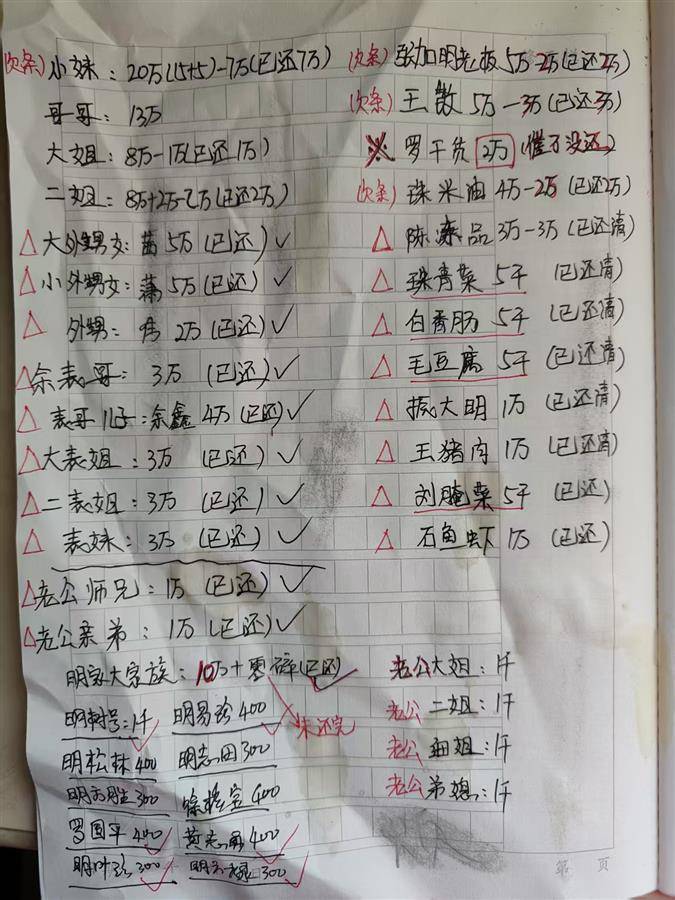 (欠条)小妹：20万(15+5)-7万(已还7万)
哥哥：13万
大姐：8万-1万(已还1万)
二姐：8万+2万-2万(已还2万)
△大外甥女：5万(已还)✓
△小外甥女：5万(已还)✓
△外甥：2万(已还)✓
△余表哥：3万(已还)✓
△表哥儿子：余鑫4万(已还)✓
△大表姐：3万(已还)✓
△二表姐：3万(已还)✓
△表妹：3万(已还)✓
△老公师兄：1万(已还)✓
△老公亲弟：1万(已还)✓
明家大家族：10万+零碎(已还)✓
未还完
明树号：1千 明易珍400
明松林400 明志田300
300 400
罗国平400 400
300 300
(欠条)张加明老板5万-2万(已还2万)
(欠条)王 5万-3万(已还3万)
※罗干货2万(惟一没还)
(欠条)珠米油4万-2万(已还2万)
△陈 品3万-3万(已还清)
△珠青菜5千(已还清)
△白香肠5千(已还清)
△毛豆腐5千(已还清)
△振大明1万(已还清)
△王猪肉1万(已还清)
△刘腌菜5千(已还)
△石鱼虾1万(已还)
老公大姐：1千
老公二姐：1千
老公细姐：1千
老公弟媳：1千
第 页